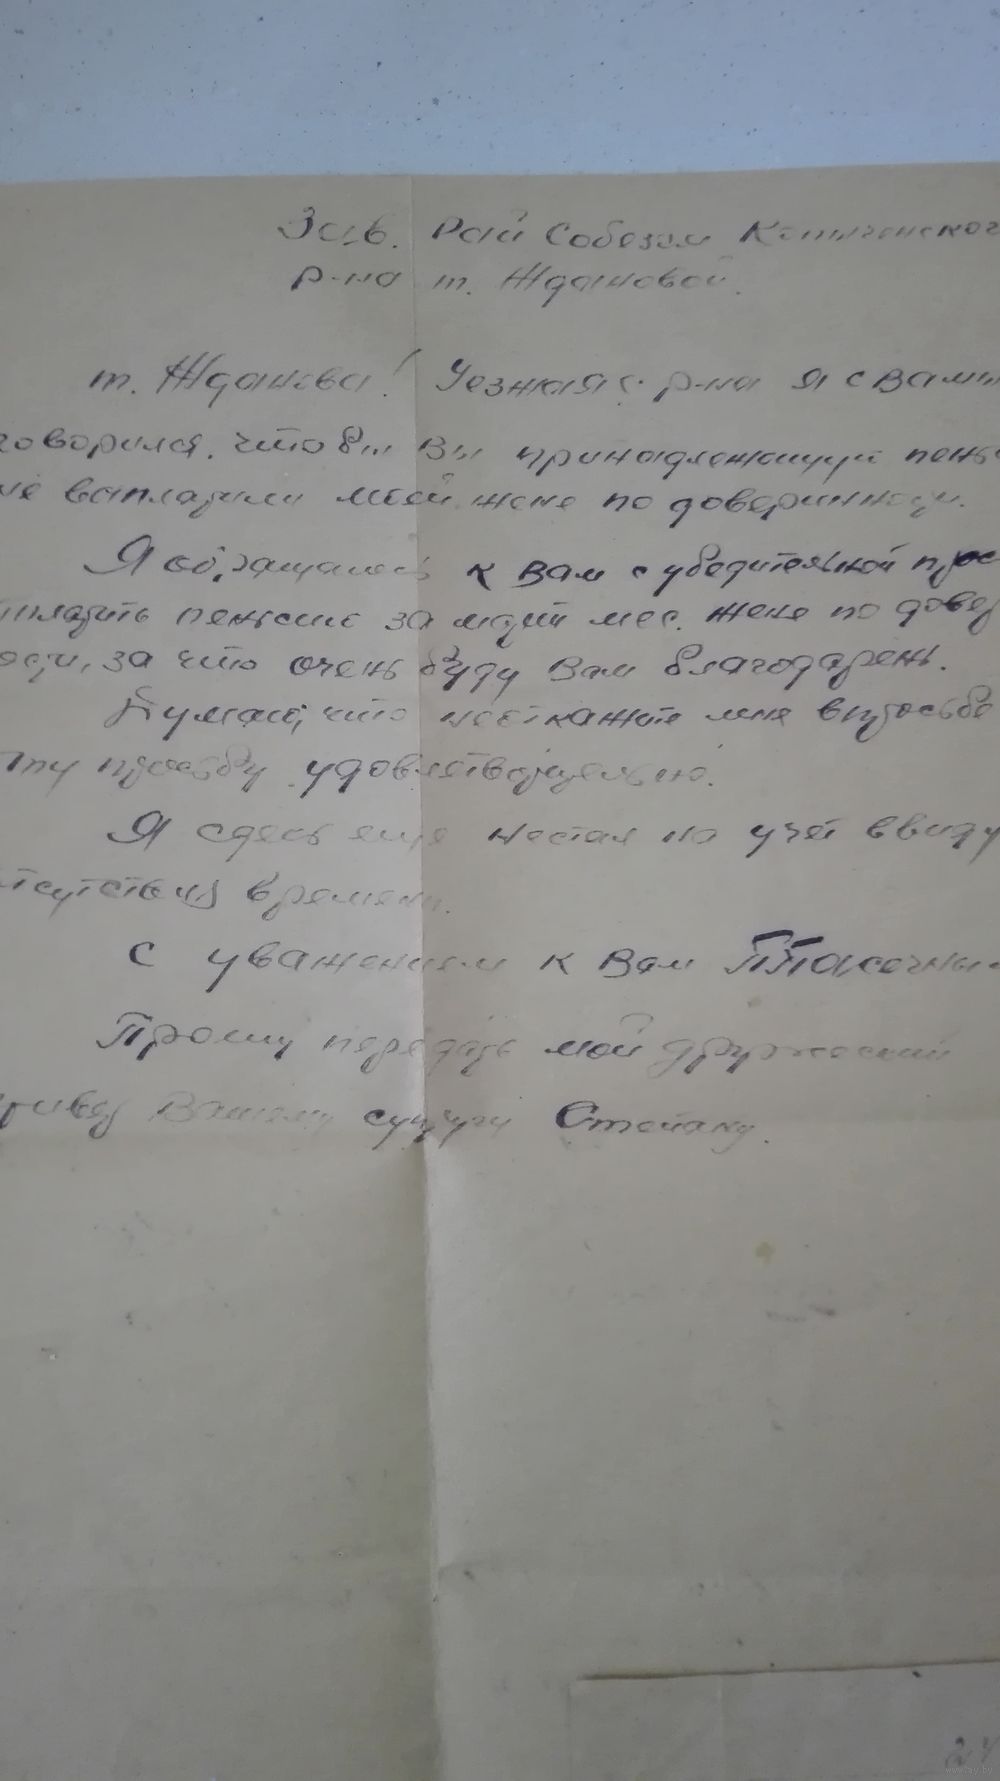 Зав. Рай Собезом
р-на т. Ждановой.
т. Жданова! Уезжая с р-на я с Вами
говорился, что бы Вы принадлежащую пень
не выплатили моей жене по
Я обращаюсь к Вам с убедительной прос
платить пенсию за март мес. жене по довер
ости, за что очень буду Вам благодарень.
Думаю, что неоткажите мне впросьбе
эту просьбу
Я сдесь еще нестал на учет ввиду
тсутствия времени.
С уважением к Вам
Прошу передать мой дружеский
привет Вашему супругу
24
www.ay.by